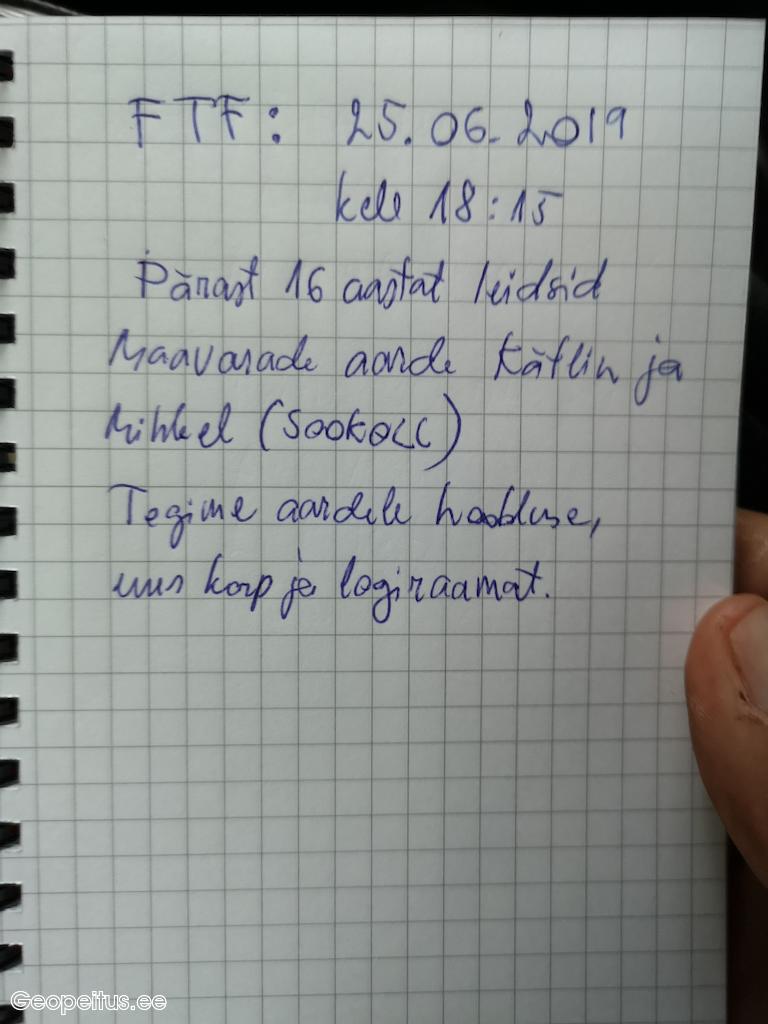 FTF: 25.06.2019
kell 18:15
Pärast 16 aastat leidsid
Maavarade aarde Kätlin ja
Mihkel (SOOKOLL)
Tegime aardele hoolduse,
uus karp ja logiraamat.
Geopeitus.ee